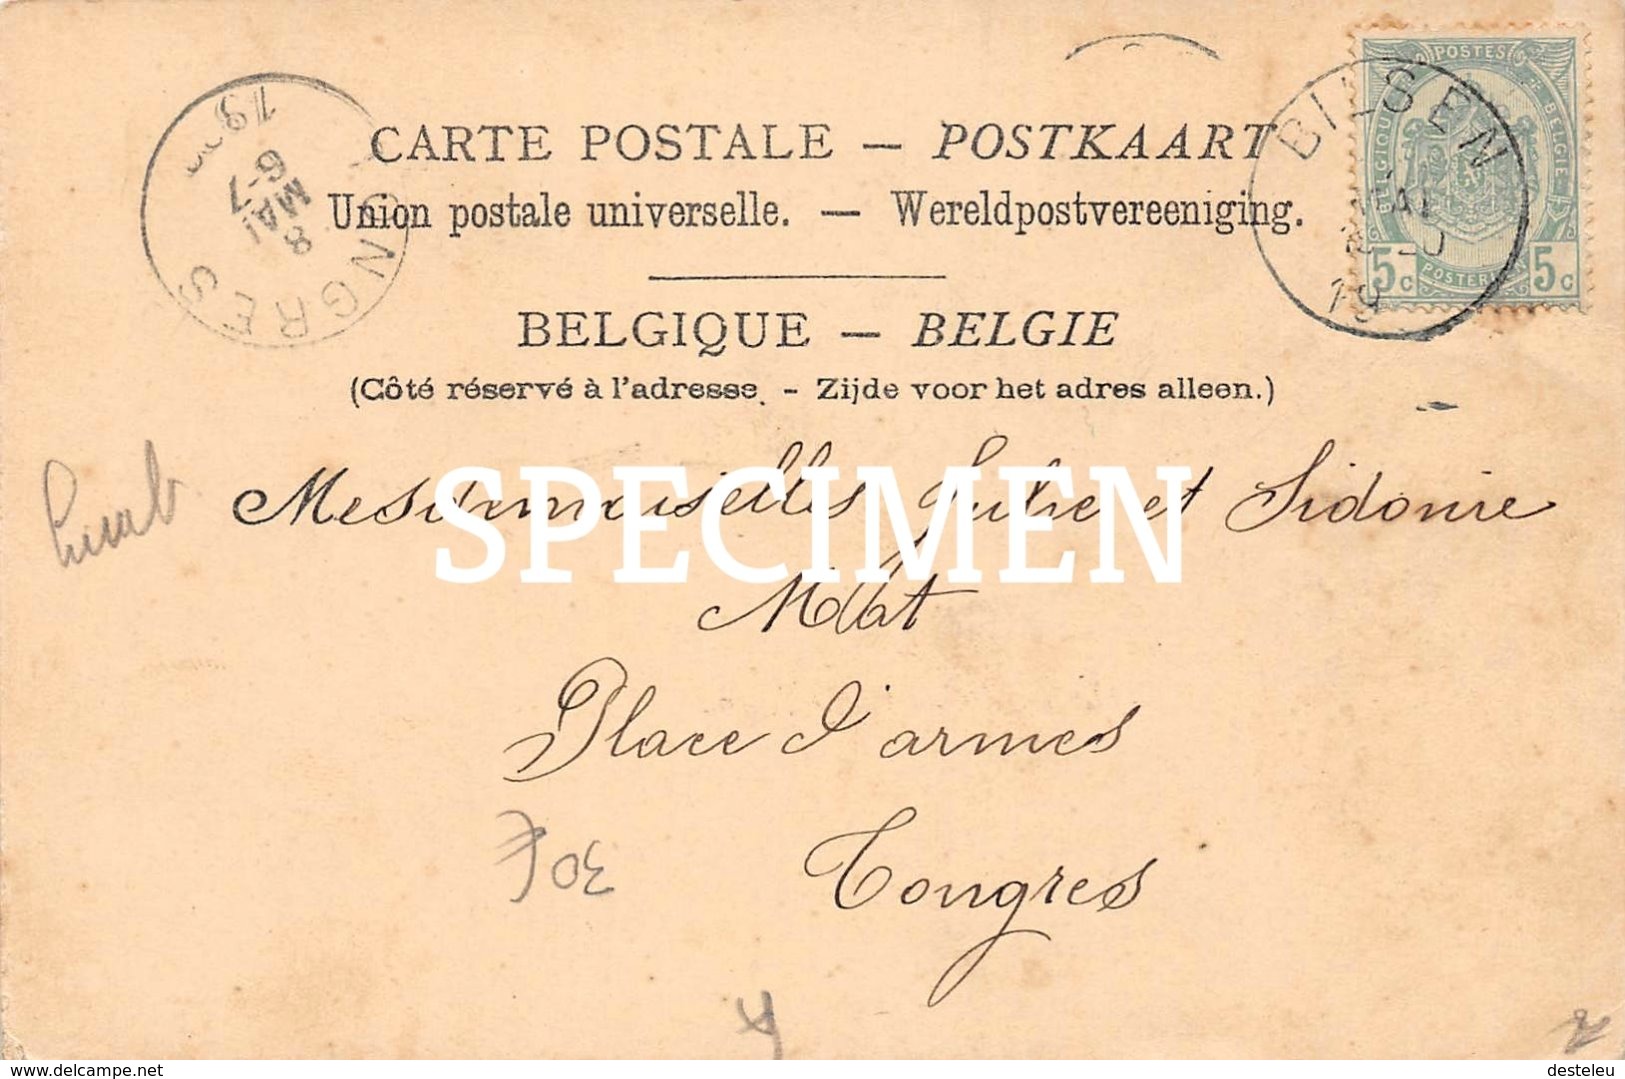 CARTE POSTALE — POSTKAART
Union postale universelle. — Wereldpostvereeniging.
BELGIQUE — BELGIE
(Côté réservé à l'adresse. - Zijde voor het adres alleen.)
BILSEN
19
POSTES
BELGIQUE
BELGIE
5c 5c
NGRES
8
MAI
6-7
Limb
SPECIMEN
Mesdemoiselles Julie et Sidonie
Place d'armes
Tongres
30€
http://www.delcampe.net
desteleu